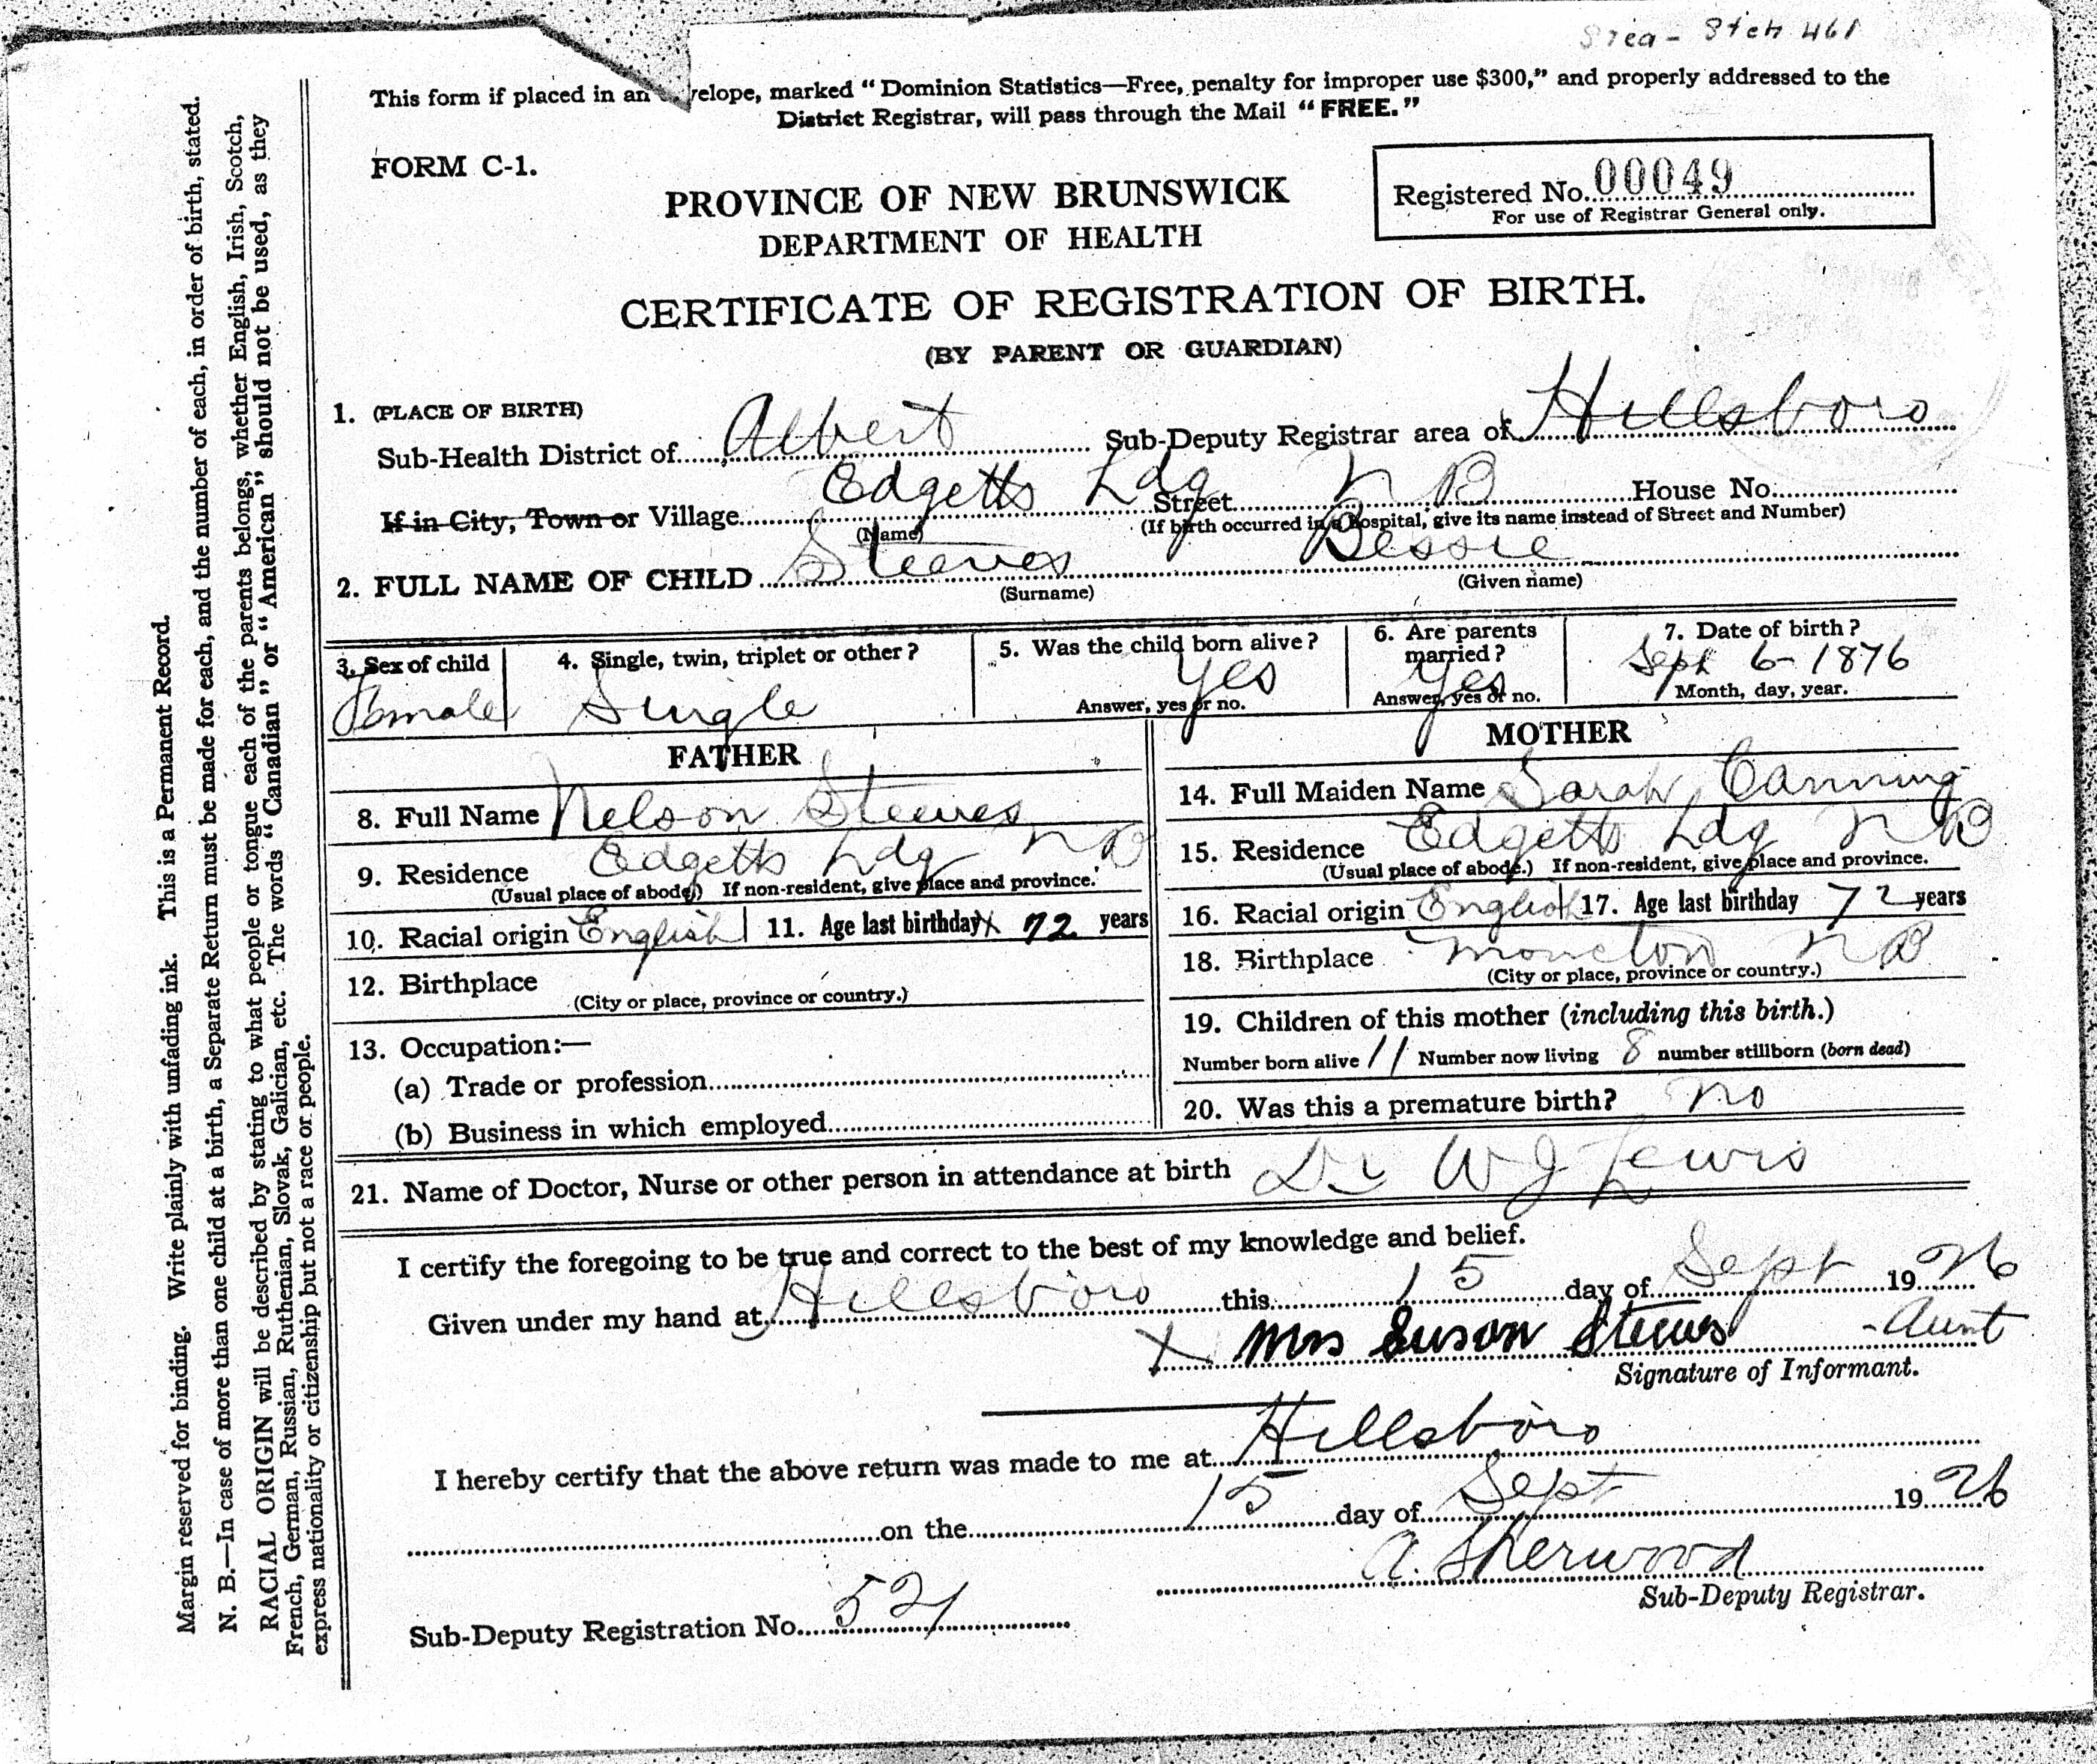 461
This form if placed in an velope, marked “Dominion Statistics—Free, penalty for improper use $300,” and properly addressed to the
District Registrar, will pass through the Mail “FREE.”
FORM C-1.
Registered No. 00049
For use of Registrar General only.
PROVINCE OF NEW BRUNSWICK
DEPARTMENT OF HEALTH
CERTIFICATE OF REGISTRATION OF BIRTH.
(BY PARENT OR GUARDIAN)
1. (PLACE OF BIRTH)
Sub-Health District of Albert Sub-Deputy Registrar area of Hillsboro
If in City, Town or Village Edgetts Ldg Street N B House No.
(Name) (If birth occurred in a hospital, give its name instead of Street and Number)
2. FULL NAME OF CHILD Steeves Bessie
(Surname) (Given name)
3. Sex of child Female
4. Single, twin, triplet or other? Single
5. Was the child born alive? Yes
Answer, yes or no.
6. Are parents married? Yes
Answer, yes or no.
7. Date of birth? Sept 6-1876
Month, day, year.
FATHER
8. Full Name Nelson Steeves
9. Residence Edgetts Ldg N B
(Usual place of abode.) If non-resident, give place and province.
10. Racial origin English 11. Age last birthday x 72 years
12. Birthplace
(City or place, province or country.)
13. Occupation:—
(a) Trade or profession
(b) Business in which employed
MOTHER
14. Full Maiden Name Sarah Canning
15. Residence Edgetts Ldg N B
(Usual place of abode.) If non-resident, give place and province.
16. Racial origin English 17. Age last birthday 72 years
18. Birthplace Moncton N B
(City or place, province or country.)
19. Children of this mother (including this birth.)
Number born alive 11 Number now living 8 number stillborn (born dead)
20. Was this a premature birth? no
21. Name of Doctor, Nurse or other person in attendance at birth Dr W J Lewis
I certify the foregoing to be true and correct to the best of my knowledge and belief.
Given under my hand at Hillsboro this 15 day of Sept 1926
x Mrs Suson Steeves - Aunt
Signature of Informant.
I hereby certify that the above return was made to me at Hillsboro
on the 15 day of Sept 1926
A. Sherwood
Sub-Deputy Registrar.
Sub-Deputy Registration No. 521
Margin reserved for binding. Write plainly with unfading ink. This is a Permanent Record.
N. B.—In case of more than one child at a birth, a Separate Return must be made for each, and the number of each, in order of birth, stated.
RACIAL ORIGIN will be described by stating to what people or tongue each of the parents belongs, whether English, Irish, Scotch,
French, German, Russian, Ruthenian, Slovak, Galician, etc. The words “Canadian” or “American” should not be used, as they
express nationality or citizenship but not a race or people.